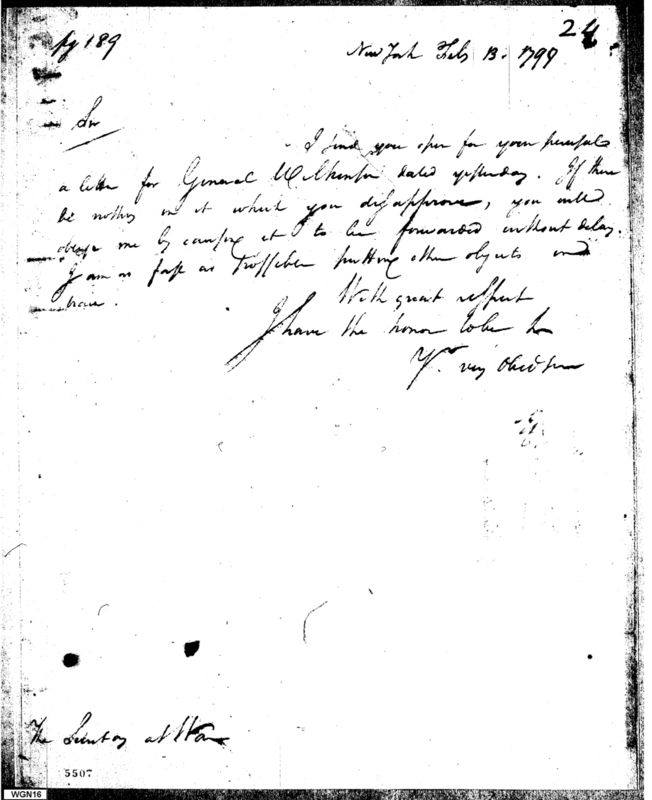 pg 189
24
New York Feby 13. 1799
Sir
I send you open for your perusal
a letter for General Wilkinson dated yesterday. If there
be nothing in it which you disapprove, you will
oblige me by causing it to be forwarded without delay.
I am as fast as possible putting other objects in
train.
With great respect
I have the honor to be Sir
Yr. very Obed ser
The Secretary at War
5507
WGN16